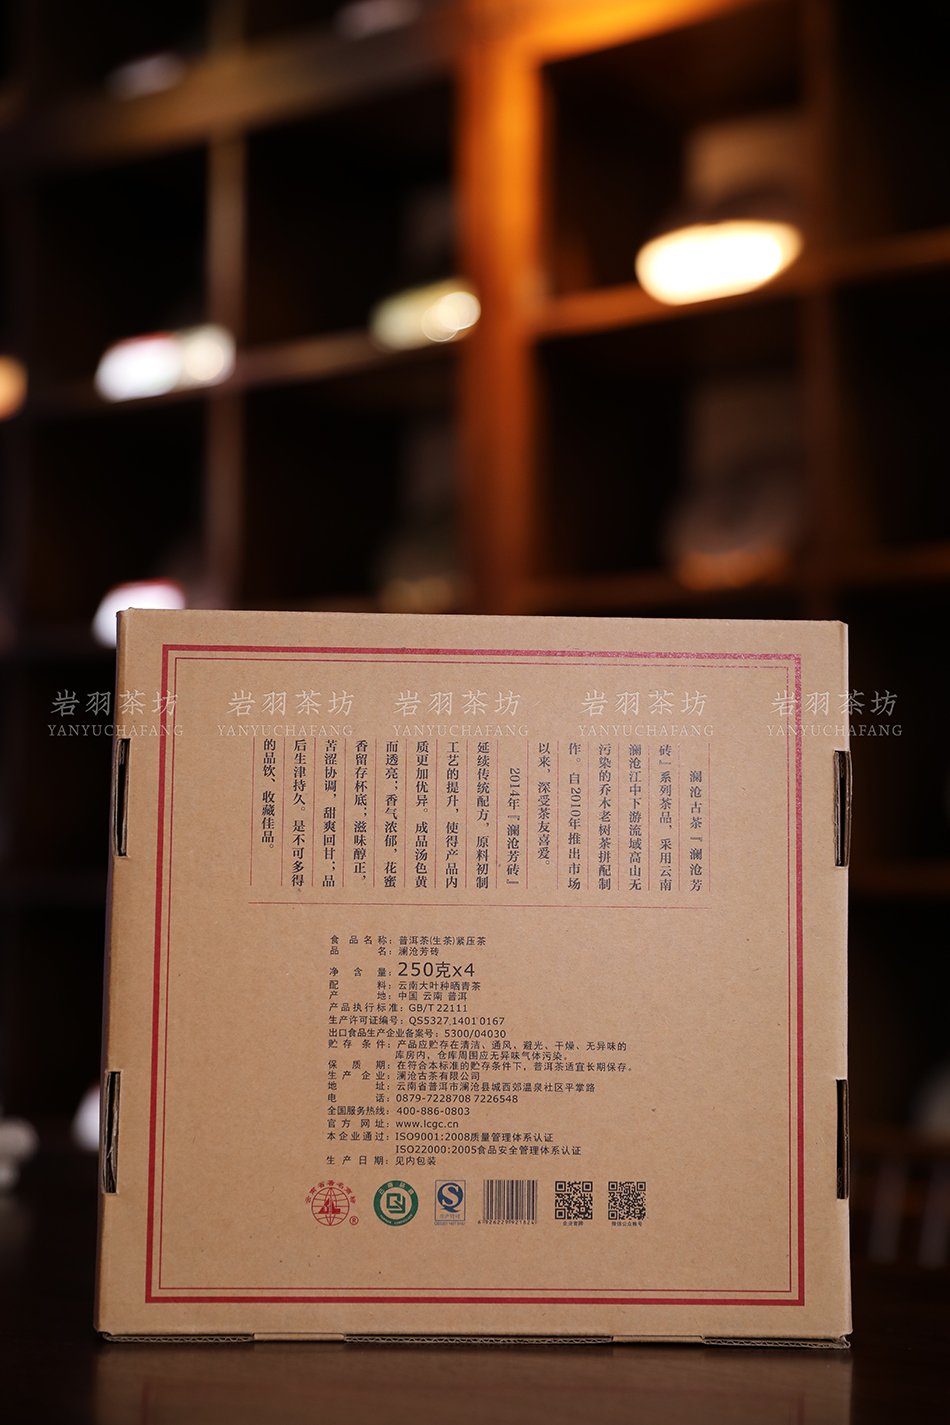 岩羽茶坊 岩羽茶坊 岩羽茶坊 岩羽茶坊 岩羽茶坊
YANYUCHAFANG YANYUCHAFANG YANYUCHAFANG YANYUCHAFANG YANYUCHAFANG
澜沧古茶『澜沧芳
砖』系列茶品，采用云南
澜沧江中下游流域高山无
污染的乔木老树茶拼配制
作。自2010年推出市场
以来，深受茶友喜爱。
2014年『澜沧芳砖』
延续传统配方，原料初制
工艺的提升，使得产品内
质更加优异。成品汤色黄
而透亮；香气浓郁，花蜜
香留存杯底；滋味醇正，
苦涩协调，甜爽回甘；品
后生津持久。是不可多得
的品饮、收藏佳品。
食品名称：普洱茶(生茶)紧压茶
品名：澜沧芳砖
净含量：250克x4
配料：云南大叶种晒青茶
产地：中国 云南 普洱
产品执行标准：GB/T 22111
生产许可证编号：QS5327 1401 0167
出口食品生产企业备案号：5300/04030
贮存条件：产品应贮存在清洁、通风、避光、干燥、无异味的
库房内，仓库周围应无异味气体污染。
保质期：在符合本标准的贮存条件下，普洱茶适宜长期保存。
生产企业：澜沧古茶有限公司
地址：云南省普洱市澜沧县城西郊温泉社区平掌路
电话：0879-7228708 7226548
全国服务热线：400-886-0803
官方网址：www.lcgc.cn
本企业通过：ISO9001:2008质量管理体系认证
ISO22000:2005食品安全管理体系认证
生产日期：见内包装
云南省著名商标
®
QS
6926229921824
企业官网
微信公众帐号